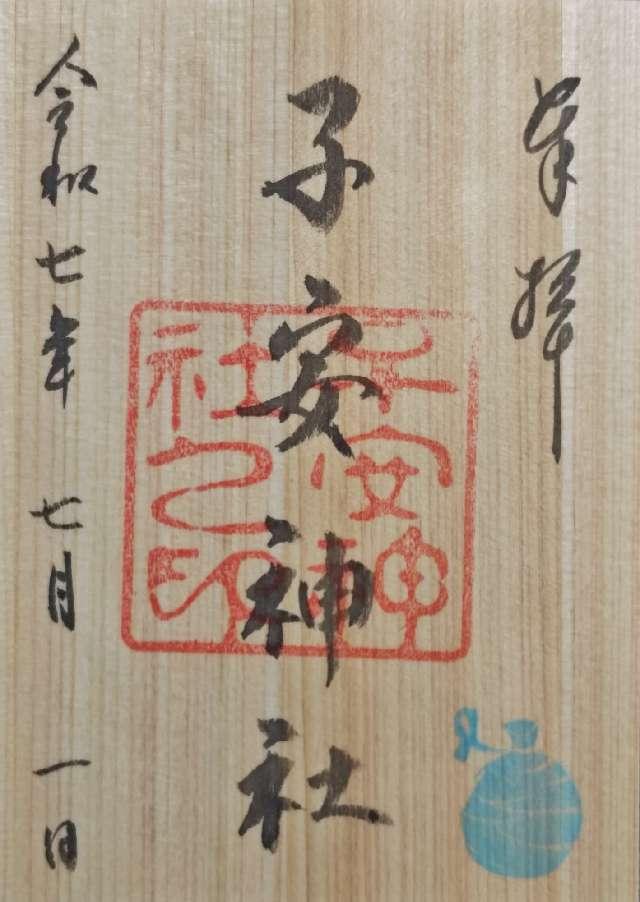 奉拝
子安神社
子安神社之印
令和七年 七月 一日